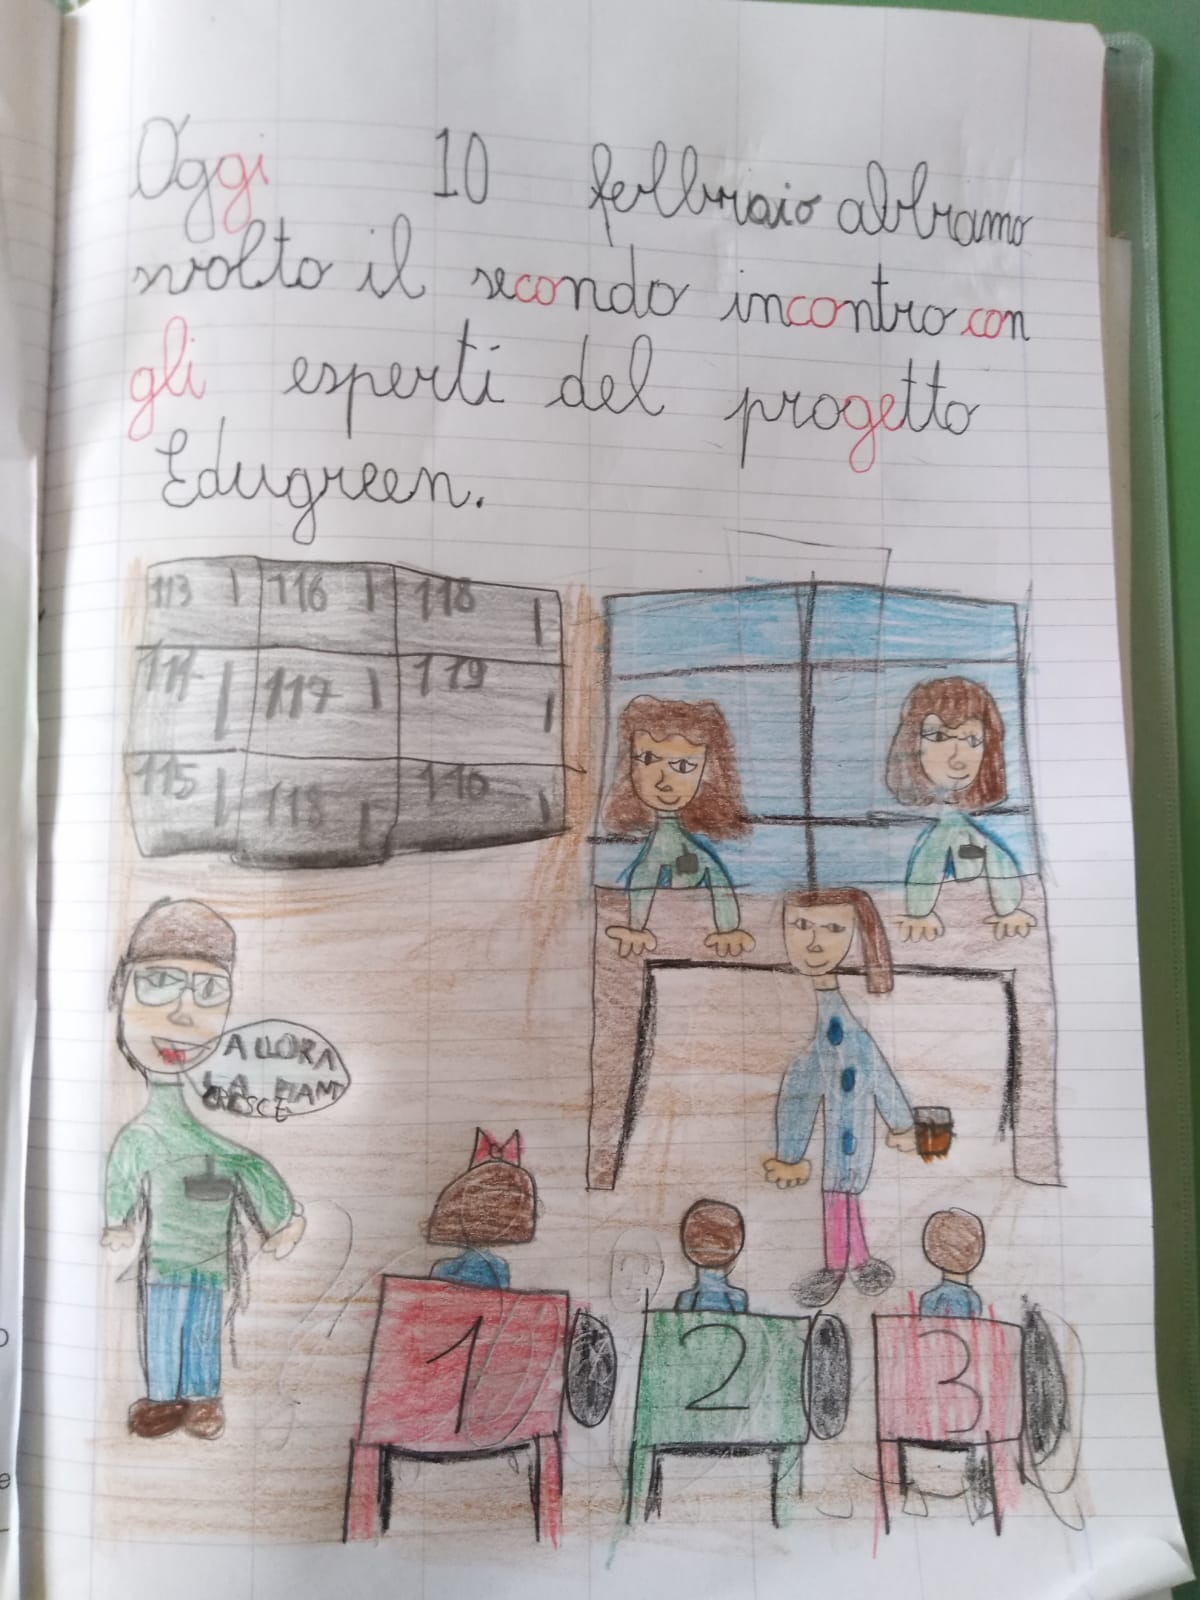 Oggi 10 febbraio abbiamo
svolto il secondo incontro con
gli esperti del progetto
Edugreen.
113 116 118
114 117 119
115 118 116
ALLORA
LA PIANT
CRESCE
1 2 3